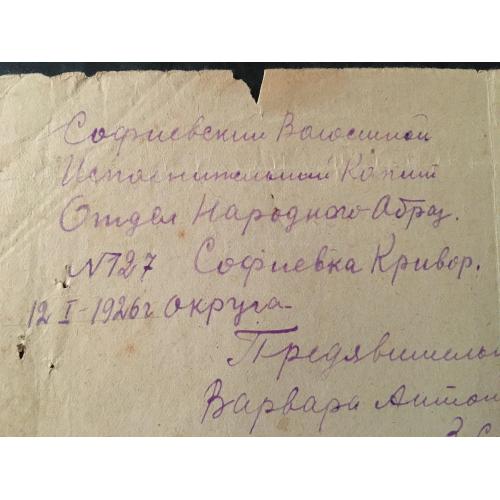 Софиевский Волосной
Исполнительный Копий
Отдел Народного Образ.
№127 Софиевка Кривор.
12 I-1926г округа
Предявительн
Варвара Антон